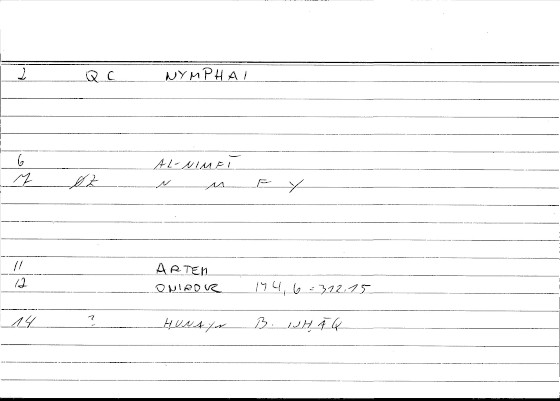 2 QC NYMPHAI
6 AL-NIMFĪ
M ØZ N M F Y
11 ARTEM
12 ONIROCR 174, 6 = 312.15
14 ? HUNAYN B. ISḤĀQ